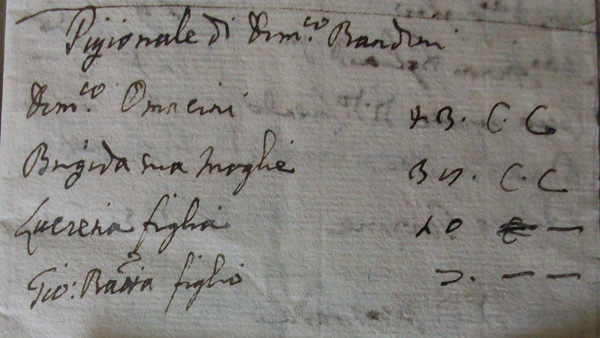 Pigionale di Dom.co Bandini
Dom.co Omacini 43. C. C
Brigida sua Moglie 35. C. C
Lucrezia figlia 10 — —
Gio: Batta figlio 5. — —